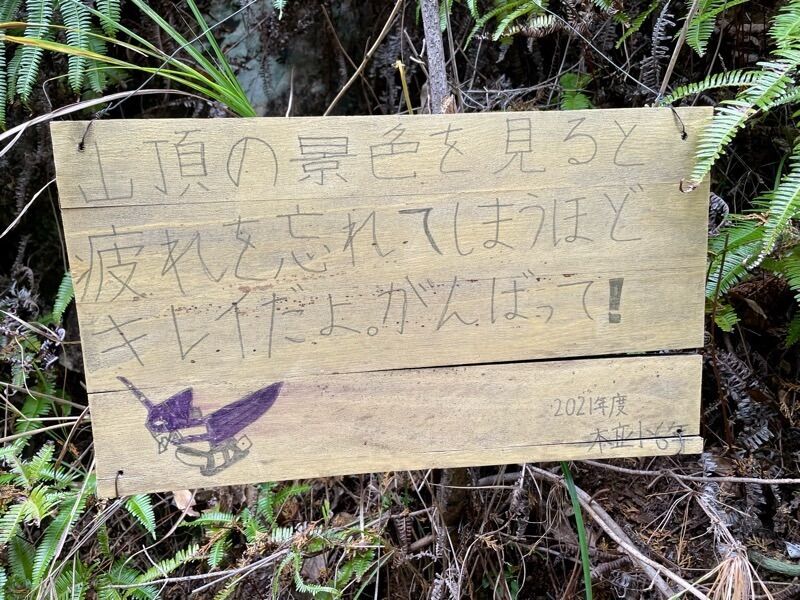 山頂の景色を見ると
疲れを忘れてしまうほど
キレイだよ。がんばって!
2021年度
本荘小6年